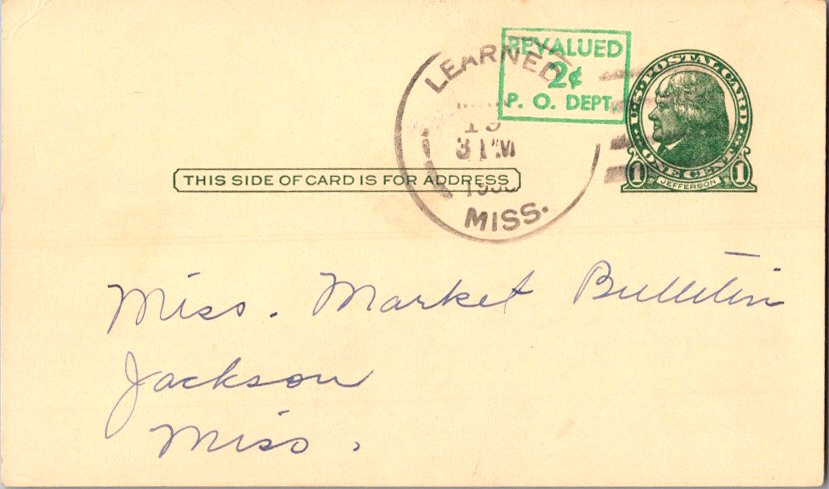 REVALUED
2¢
P. O. DEPT.
U.S. POSTAL CARD
ONE CENT
1 JEFFERSON 1
LEARNED
19
PM
MISS.
THIS SIDE OF CARD IS FOR ADDRESS
Miss. Market Bulletin
Jackson
Miss.